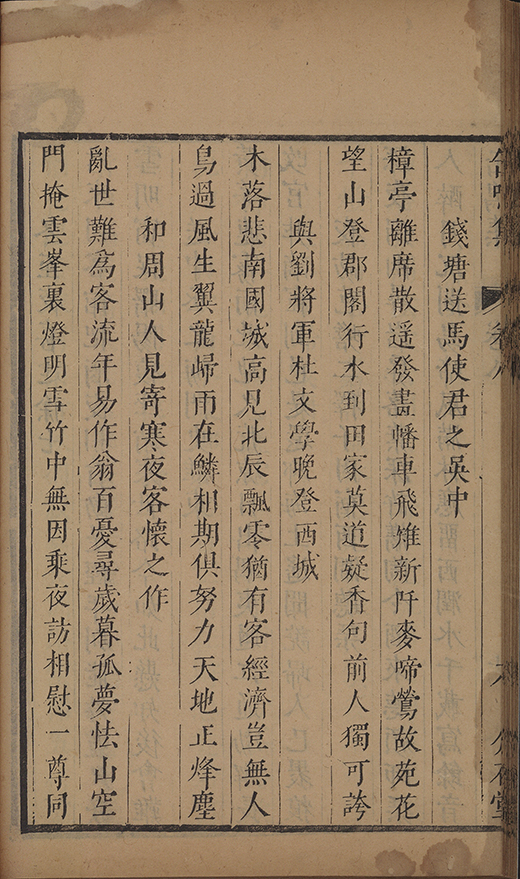 錢塘送馬使君之吳中
樟亭離席散遥發畫幡車飛雉新阡麥啼鶯故苑花
望山登郡閣行水到田家莫道凝香句前人獨可誇
與劉將軍杜文學晚登西城
木落悲南國城高見北辰飄零猶有客經濟豈無人
鳥過風生翼龍歸雨在鱗相期俱努力天地正烽塵
和周山人見寄寒夜客懷之作
亂世難爲客流年易作翁百憂尋歲暮孤夢怯山空
門掩雲峯裏燈明雪竹中無因乘夜訪相慰一尊同